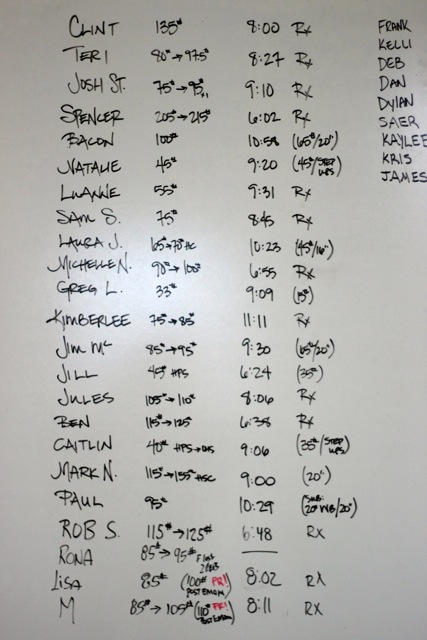 CLINT 135# 8:00 Rx
TERI 80#→97.5# 8:27 Rx
JOSH ST. 75#→95# 9:10 Rx
SPENCER 205#→215# 6:02 Rx
BACON 100# 10:58 (65#/20")
NATALIE 45# 9:20 (45#/STEP UPS)
LUANNE 55# 9:31 Rx
SAM S. 75# 8:45 Rx
LAURA J. 65#→70# HC 10:23 (45#/16")
MICHELLE N. 90#→100# 6:55 Rx
GREG L. 33# 9:09 (15#)
KIMBERLEE 75#→85# 11:11 Rx
JIM Mc 85#→95# 9:30 (65#/20")
JILL 45# HPS 6:24 (35#)
JULES 105#→110# 8:06 Rx
BEN 115#→125# 6:38 Rx
CAITLIN 40# HPS→ 9:06 (35#/STEP UPS)
MARK N. 115#→155# HSC 9:00 (20")
PAUL 95# 10:29 (SUB: 20# WB/20")
ROB S. 115#→125# 6:48 Rx
RONA 85#→95# —
LISA 85# (100# PR! POST EMOM) 8:02 Rx
M 85#→105# (110# PR! POST EMOM) 8:11 Rx
FRANK
KELLI
DEB
DAN
DYLAN
SAER
KAYLEE
KRIS
JAMES